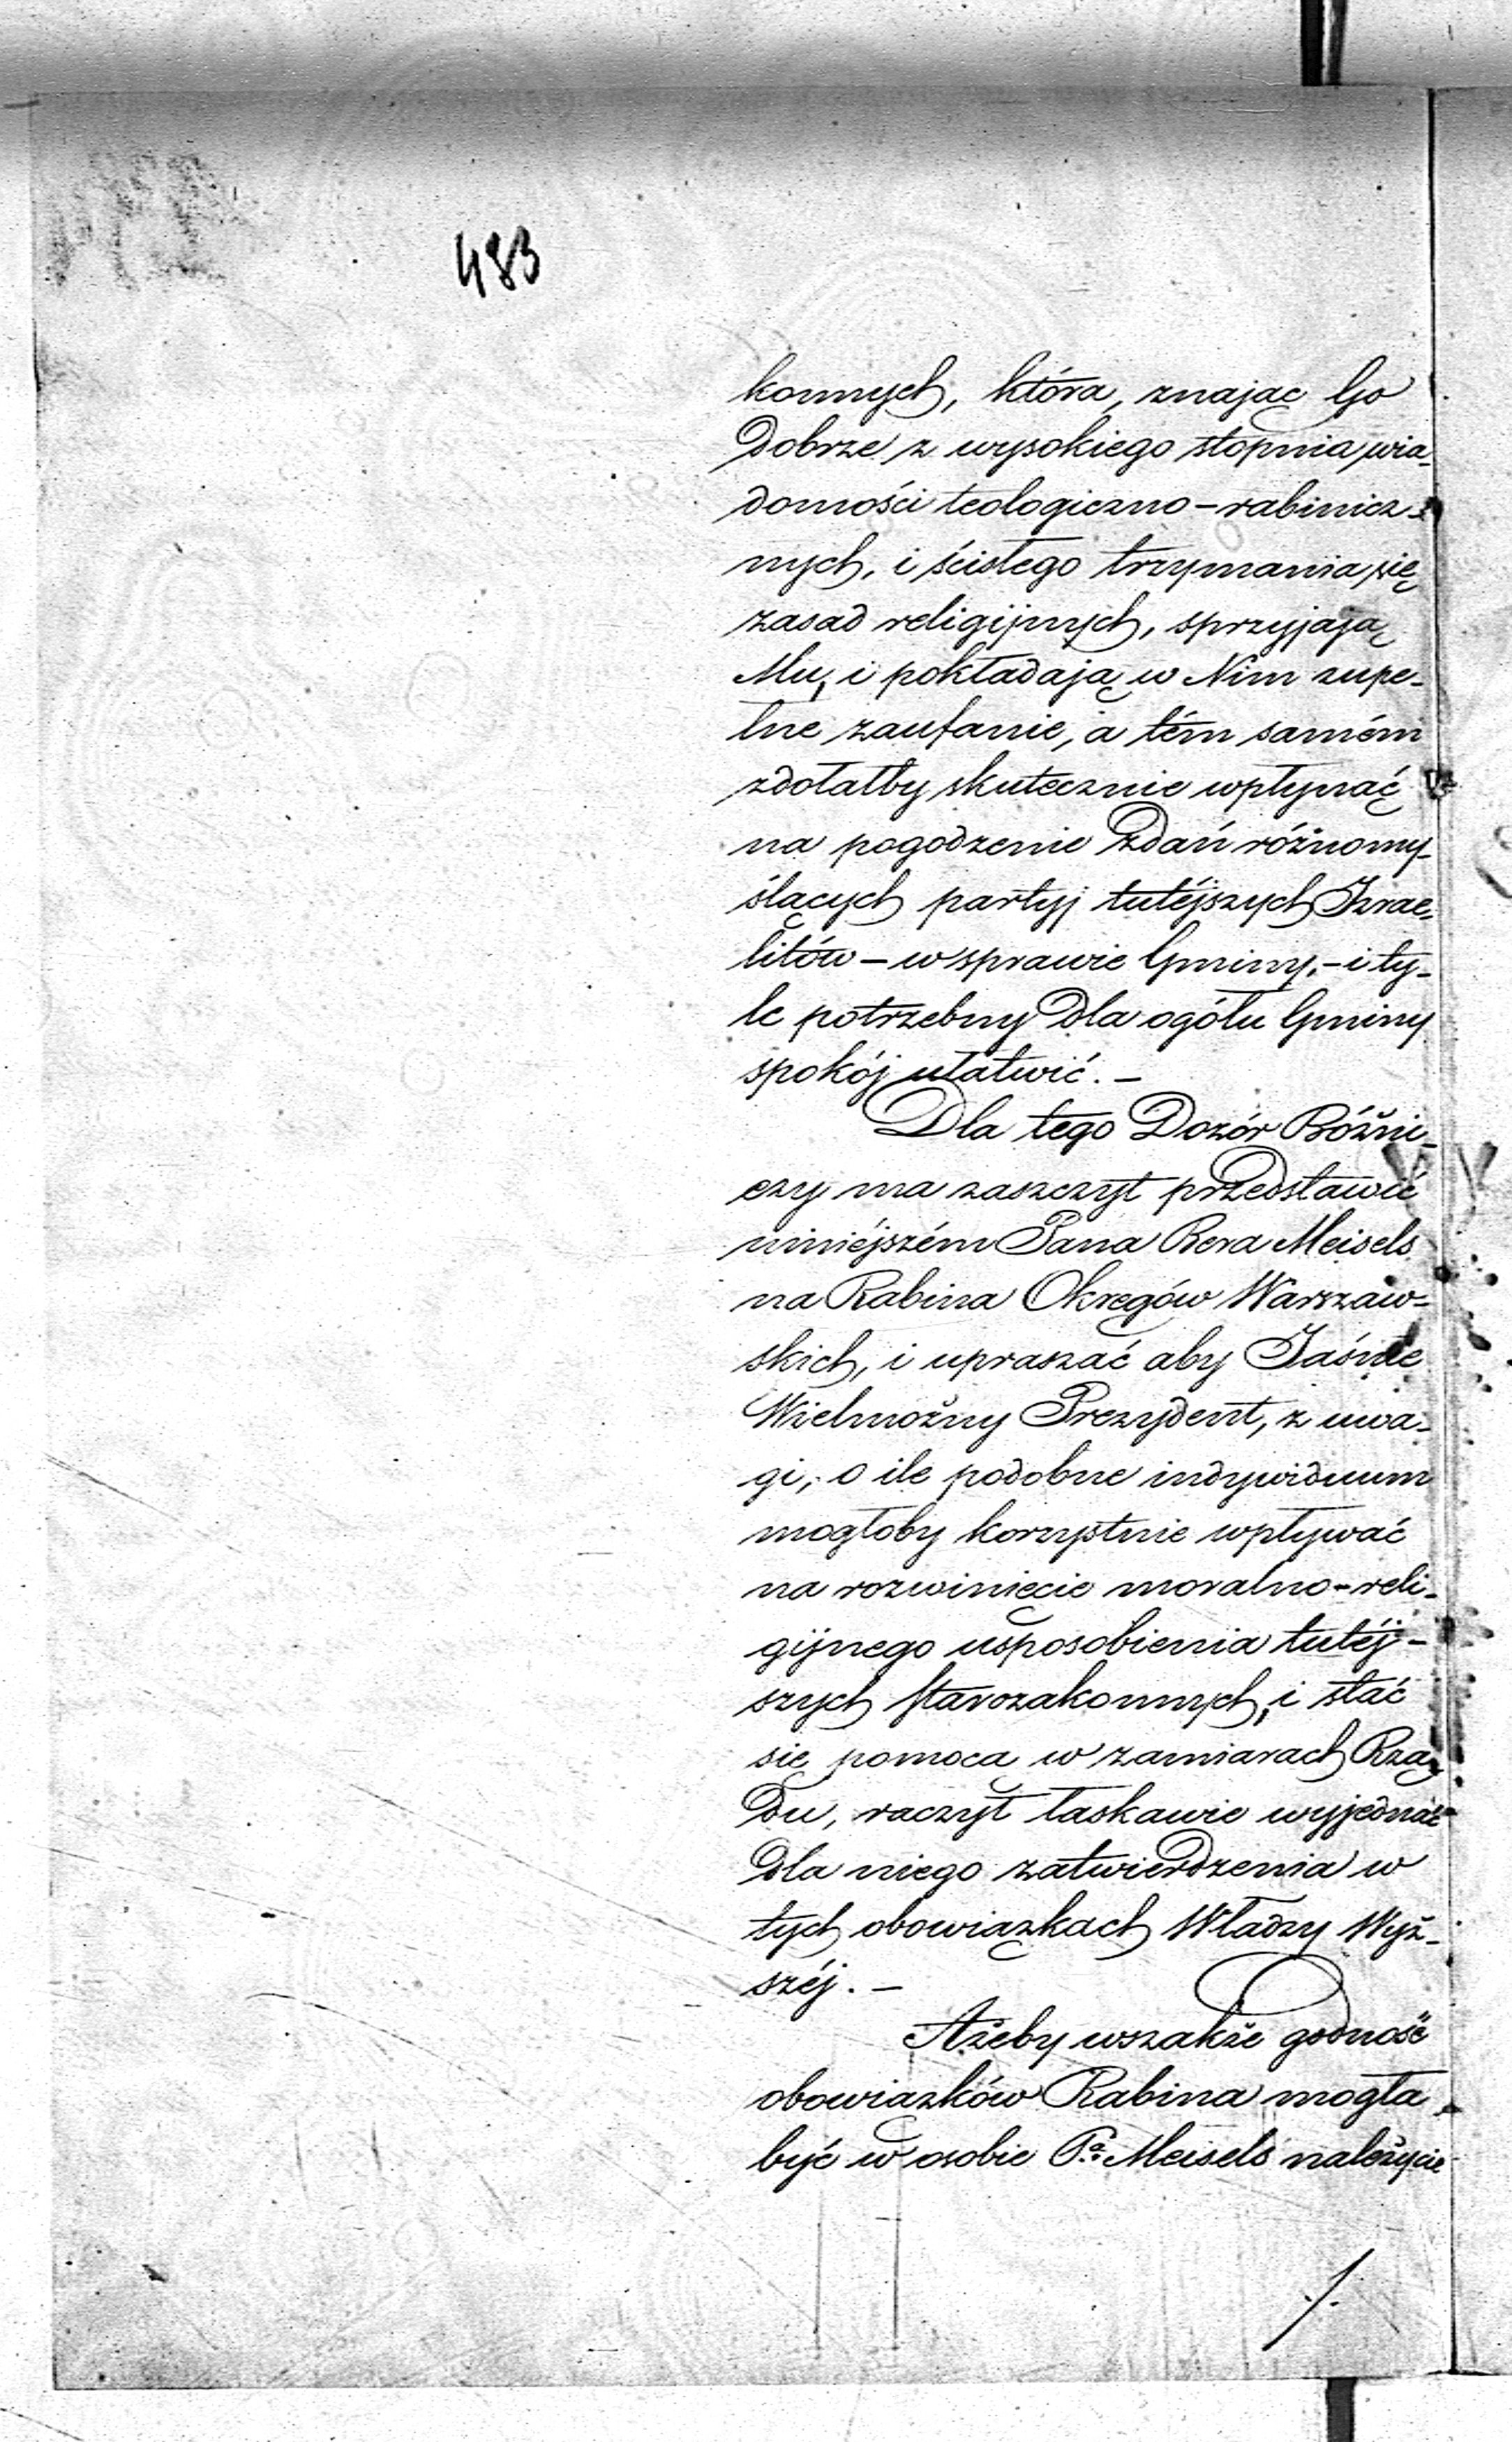 483
konnych, która, znając Go
dobrze z wysokiego stopnia wia-
domości teologiczno-rabinicz-
nych, i ścisłego trzymania się
zasad religijnych, sprzyjają
Mu, i pokładają w Nim zupe-
łne zaufanie, a tém samém
zdołałby skutecznie wpłynąć
na pogodzenie zdań różnomy-
ślących partyj tutéjszych Izrae-
litów - w sprawie Gminy, - i ty-
le potrzebny dla ogółu Gminy
spokój ułatwić. -
Dla tego Dozór Bóżni-
czy ma zaszczyt przedstawić
niniéjszém Pana Bera Meisels
na Rabina Okręgów Warszaw-
skich, i upraszać aby Jaśnie
Wielmożny Prezydent, z uwa-
gi, o ile podobne indywiduum
mogłoby korzystnie wpływać
na rozwinięcie moralno-reli-
gijnego usposobienia tutéj-
szych starozakonnych, i stać
się pomocą w zamiarach Rzą-
du, raczył łaskawie wyjednać
dla niego zatwierdzenia w
tych obowiązkach Władzy Wyż-
széj. -
Ażeby wszakże godność
obowiązków Rabina mogła
być w osobie Pa. Meisels należycie
./.